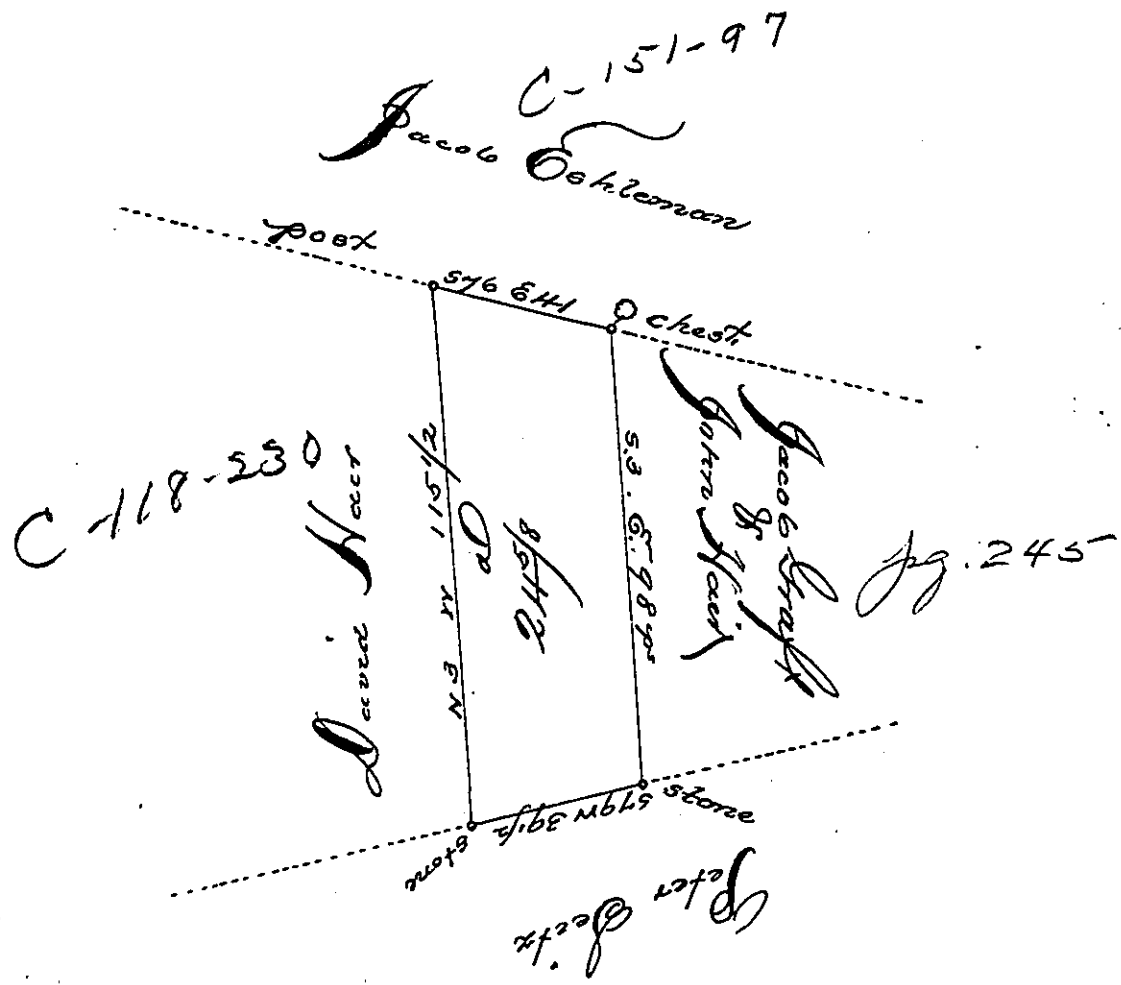 C-151-97
Jacob Eshleman
post
S76 E41
chest.
C-118-230
David Hare
N3 W 115 1/2
S.3. E. 98 p
Jacob Graff
&
John Hair
pg. 245
S79W 39 1/2
stone
stone
Peter Seitz